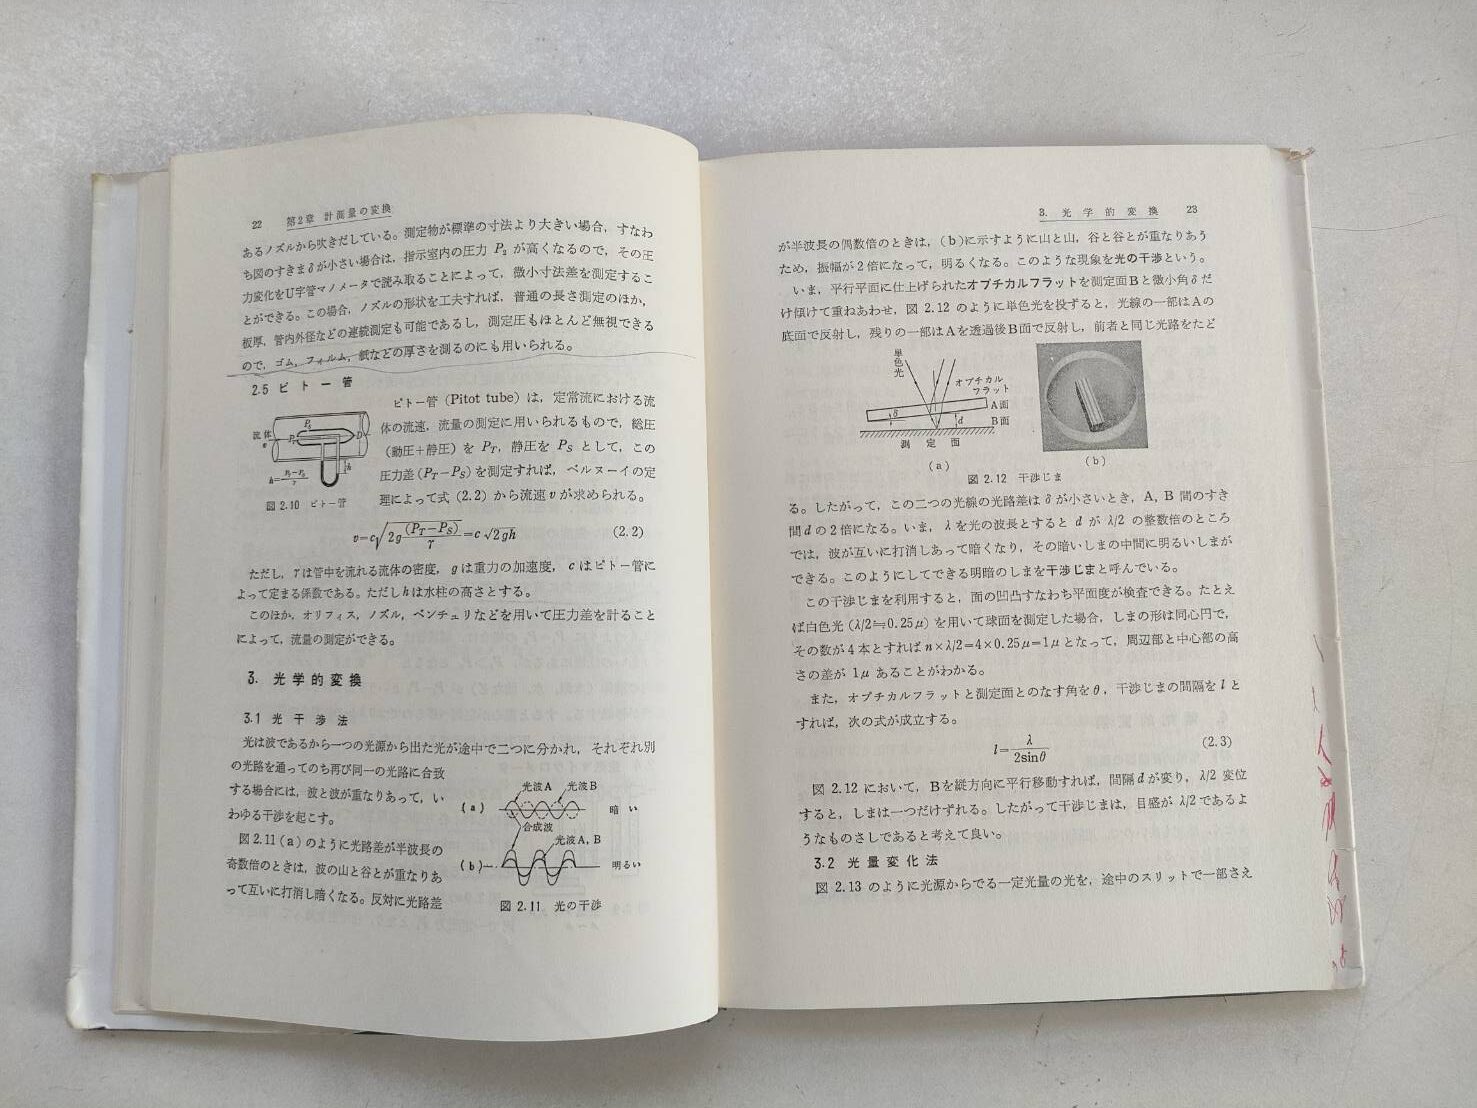 22　第2章 計測量の変換
あるノズルから吹きだしている。測定物が標準の寸法より大きい場合，すなわ
ち図のすきまδが小さい場合は，指示室内の圧力 P₂ が高くなるので，その圧
力変化をU字管マノメータで読み取ることによって，微小寸法差を測定するこ
とができる。この場合，ノズルの形状を工夫すれば，普通の長さ測定のほか，
板厚，管内外径などの連続測定も可能であるし，測定圧もほとんど無視できる
ので，ゴム，フォルム，紙などの厚さを測るのにも用いられる。
2.5 ピトー管
ピトー管（Pitot tube）は，定常流における流
体の流速，流量の測定に用いられるもので，総圧
（動圧＋静圧）を P_T，静圧を P_S として，この
圧力差（P_T−P_S）を測定すれば，ベルヌーイの定
理によって式（2.2）から流速 v が求められる。
流体
v
D
h
図 2.10 ピトー管
v=c√2g(P_T−P_S)/γ=c√2gh　(2.2)
ただし，γは管中を流れる流体の密度，gは重力の加速度，cはピトー管に
よって定まる係数である。ただしhは水柱の高さとする。
このほか，オリフィス，ノズル，ベンチュリなどを用いて圧力差を計ること
によって，流量の測定ができる。
3. 光学的変換
3.1 光干渉法
光は波であるから一つの光源から出た光が途中で二つに分かれ，それぞれ別
の光路を通ってのち再び同一の光路に合致
する場合には，波と波が重なりあって，い
わゆる干渉を起こす。
図2.11(a)のように光路差が半波長の
奇数倍のときは，波の山と谷とが重なりあ
って互いに打消し暗くなる。反対に光路差
光波A　光波B
(a)　暗い
合成波
光波A，B
(b)　明るい
図 2.11 光の干渉
3. 光学的変換　23
が半波長の偶数倍のときは，(b)に示すように山と山，谷と谷とが重なりあう
ため，振幅が2倍になって，明るくなる。このような現象を光の干渉という。
いま，平行平面に仕上げられたオプチカルフラットを測定面Bと微小角δだ
け傾けて重ねあわせ，図 2.12 のように単色光を投ずると，光線の一部はAの
底面で反射し，残りの一部はAを透過後B面で反射し，前者と同じ光路をたど
単色光
オプチカル
フラット
A面
δ
d
B面
測定面
(a)
(b)
図 2.12 干渉じま
る。したがって，この二つの光線の光路差はδが小さいとき，A，B間のすき
間dの2倍になる。いま，λを光の波長とすると d が λ/2 の整数倍のところ
では，波が互いに打消しあって暗くなり，その暗いしまの中間に明るいしまが
できる。このようにしてできる明暗のしまを干渉じまと呼んでいる。
この干渉じまを利用すると，面の凹凸すなわち平面度が検査できる。たとえ
ば白色光（λ/2≒0.25μ）を用いて球面を測定した場合，しまの形は同心円で，
その数が4本とすればn×λ/2=4×0.25μ=1μとなって，周辺部と中心部の高
さの差が 1μ あることがわかる。
また，オプチカルフラットと測定面とのなす角をθ，干渉じまの間隔をlと
すれば，次の式が成立する。
l=λ/2sinθ　(2.3)
図 2.12 において，Bを縦方向に平行移動すれば，間隔dが変り，λ/2 変位
すると，しまは一つだけずれる。したがって干渉じまは，目盛が λ/2 であるよ
うなものさしであると考えて良い。
3.2 光量変化法
図 2.13 のように光源からでる一定光量の光を，途中のスリットで一部さえ